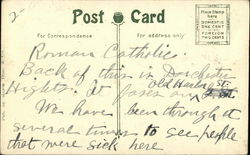 2
Post Card
For Correspondence
For address only
Place Stamp
here
DOMESTIC
ONE CENT
FOREIGN
TWO CENTS
Roman Catholic.
Back of this is Dorchester
Old Harbor St
Hights. It faces on
We have been through it
several times to see people
that were sick here